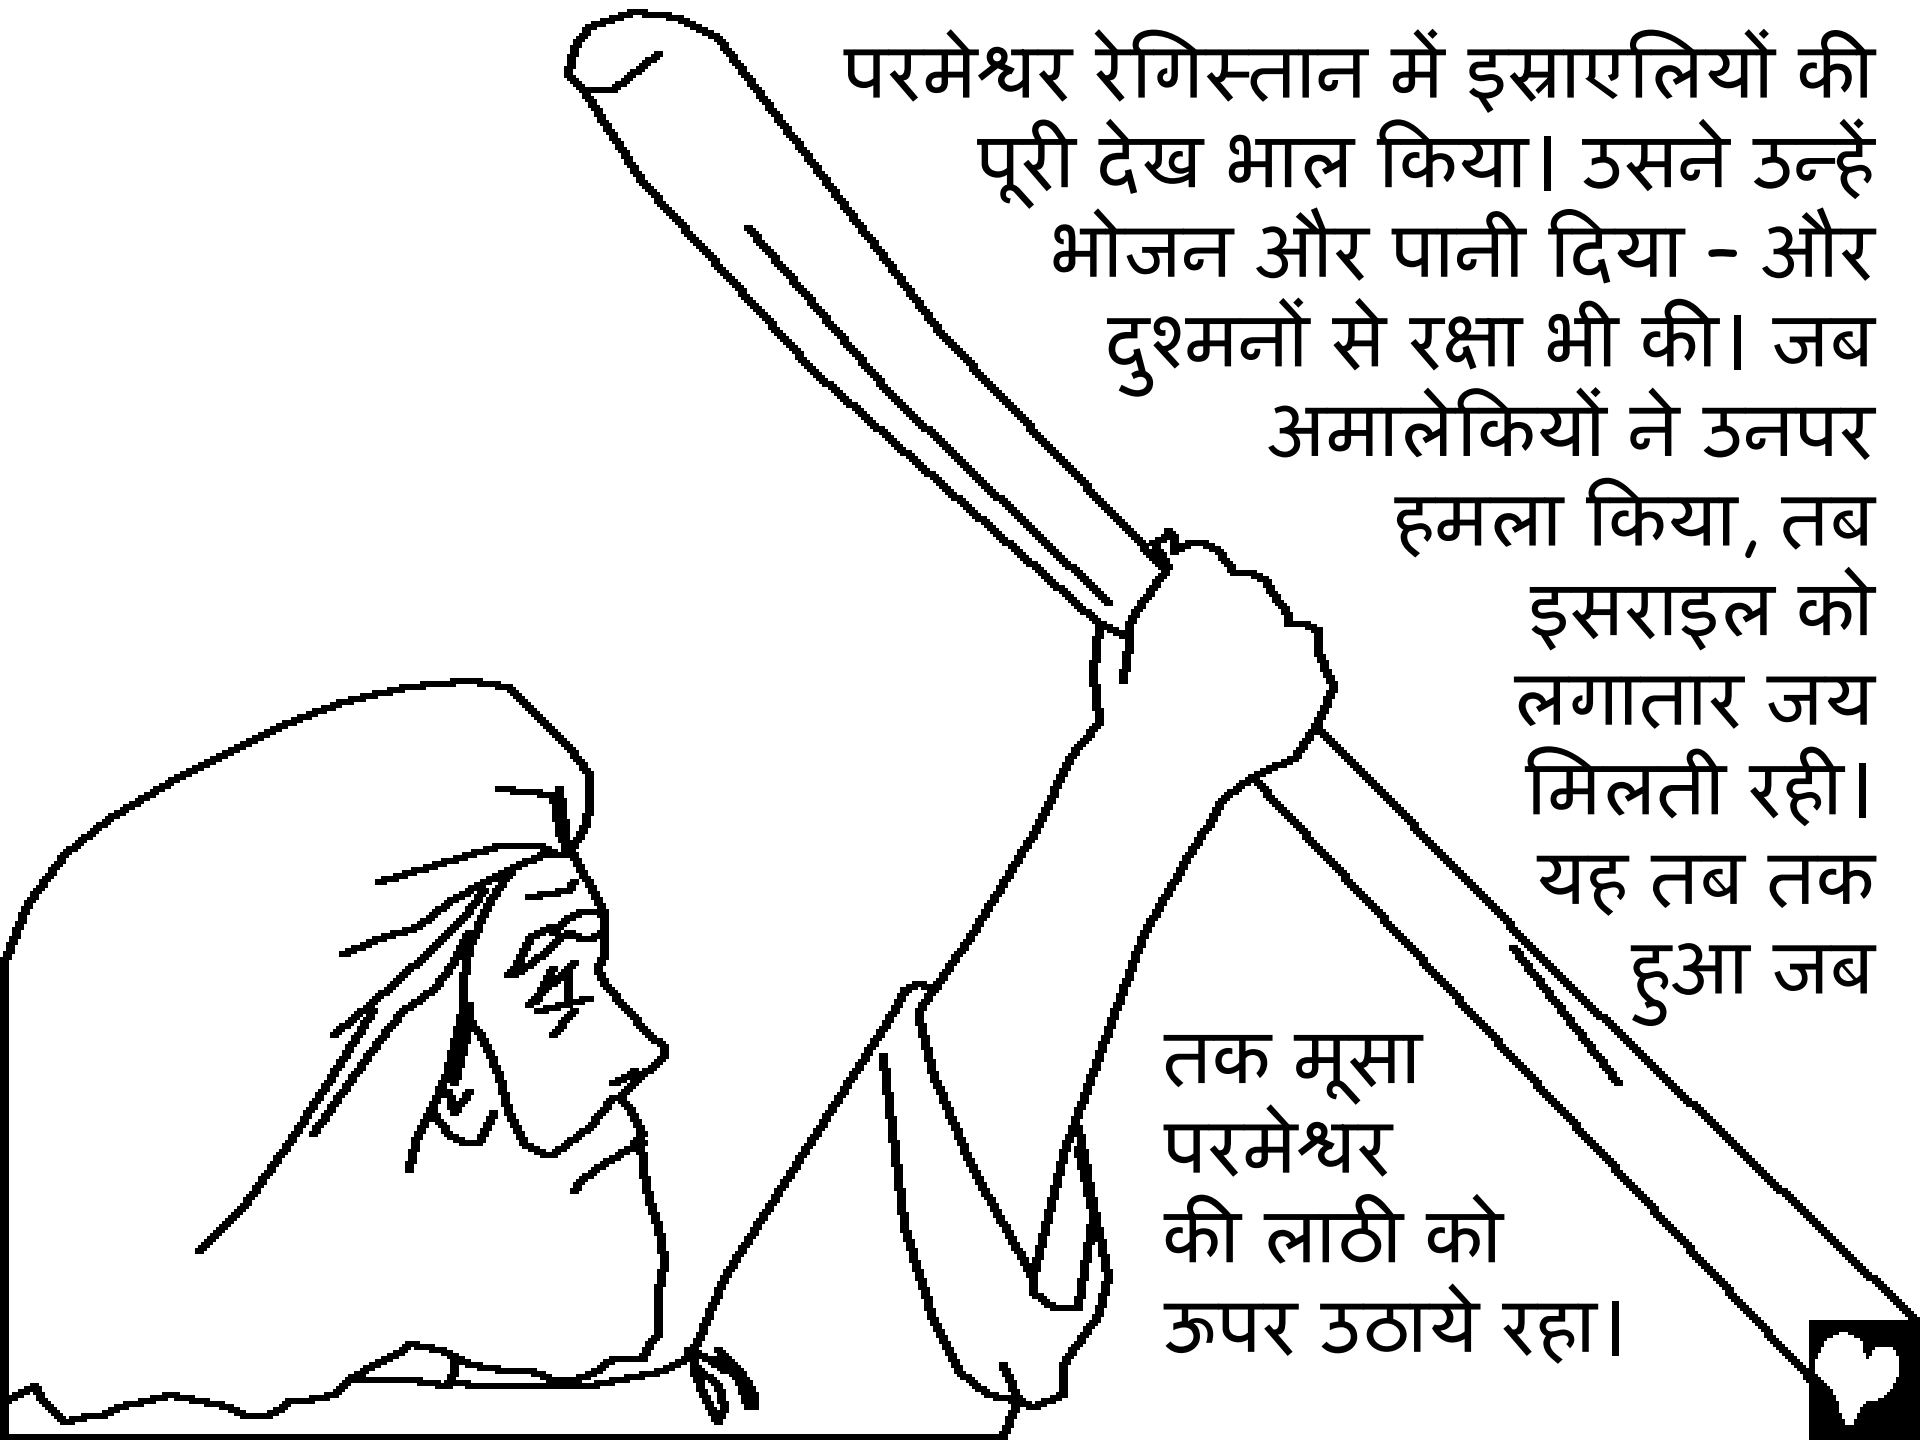 परमेश्वर रेगिस्तान में इस्राएलियों की
पूरी देख भाल किया। उसने उन्हें
भोजन और पानी दिया - और
दुश्मनों से रक्षा भी की। जब
अमालेकियों ने उनपर
हमला किया, तब
इसराइल को
लगातार जय
मिलती रही।
यह तब तक
हुआ जब
तक मूसा
परमेश्वर
की लाठी को
ऊपर उठाये रहा।